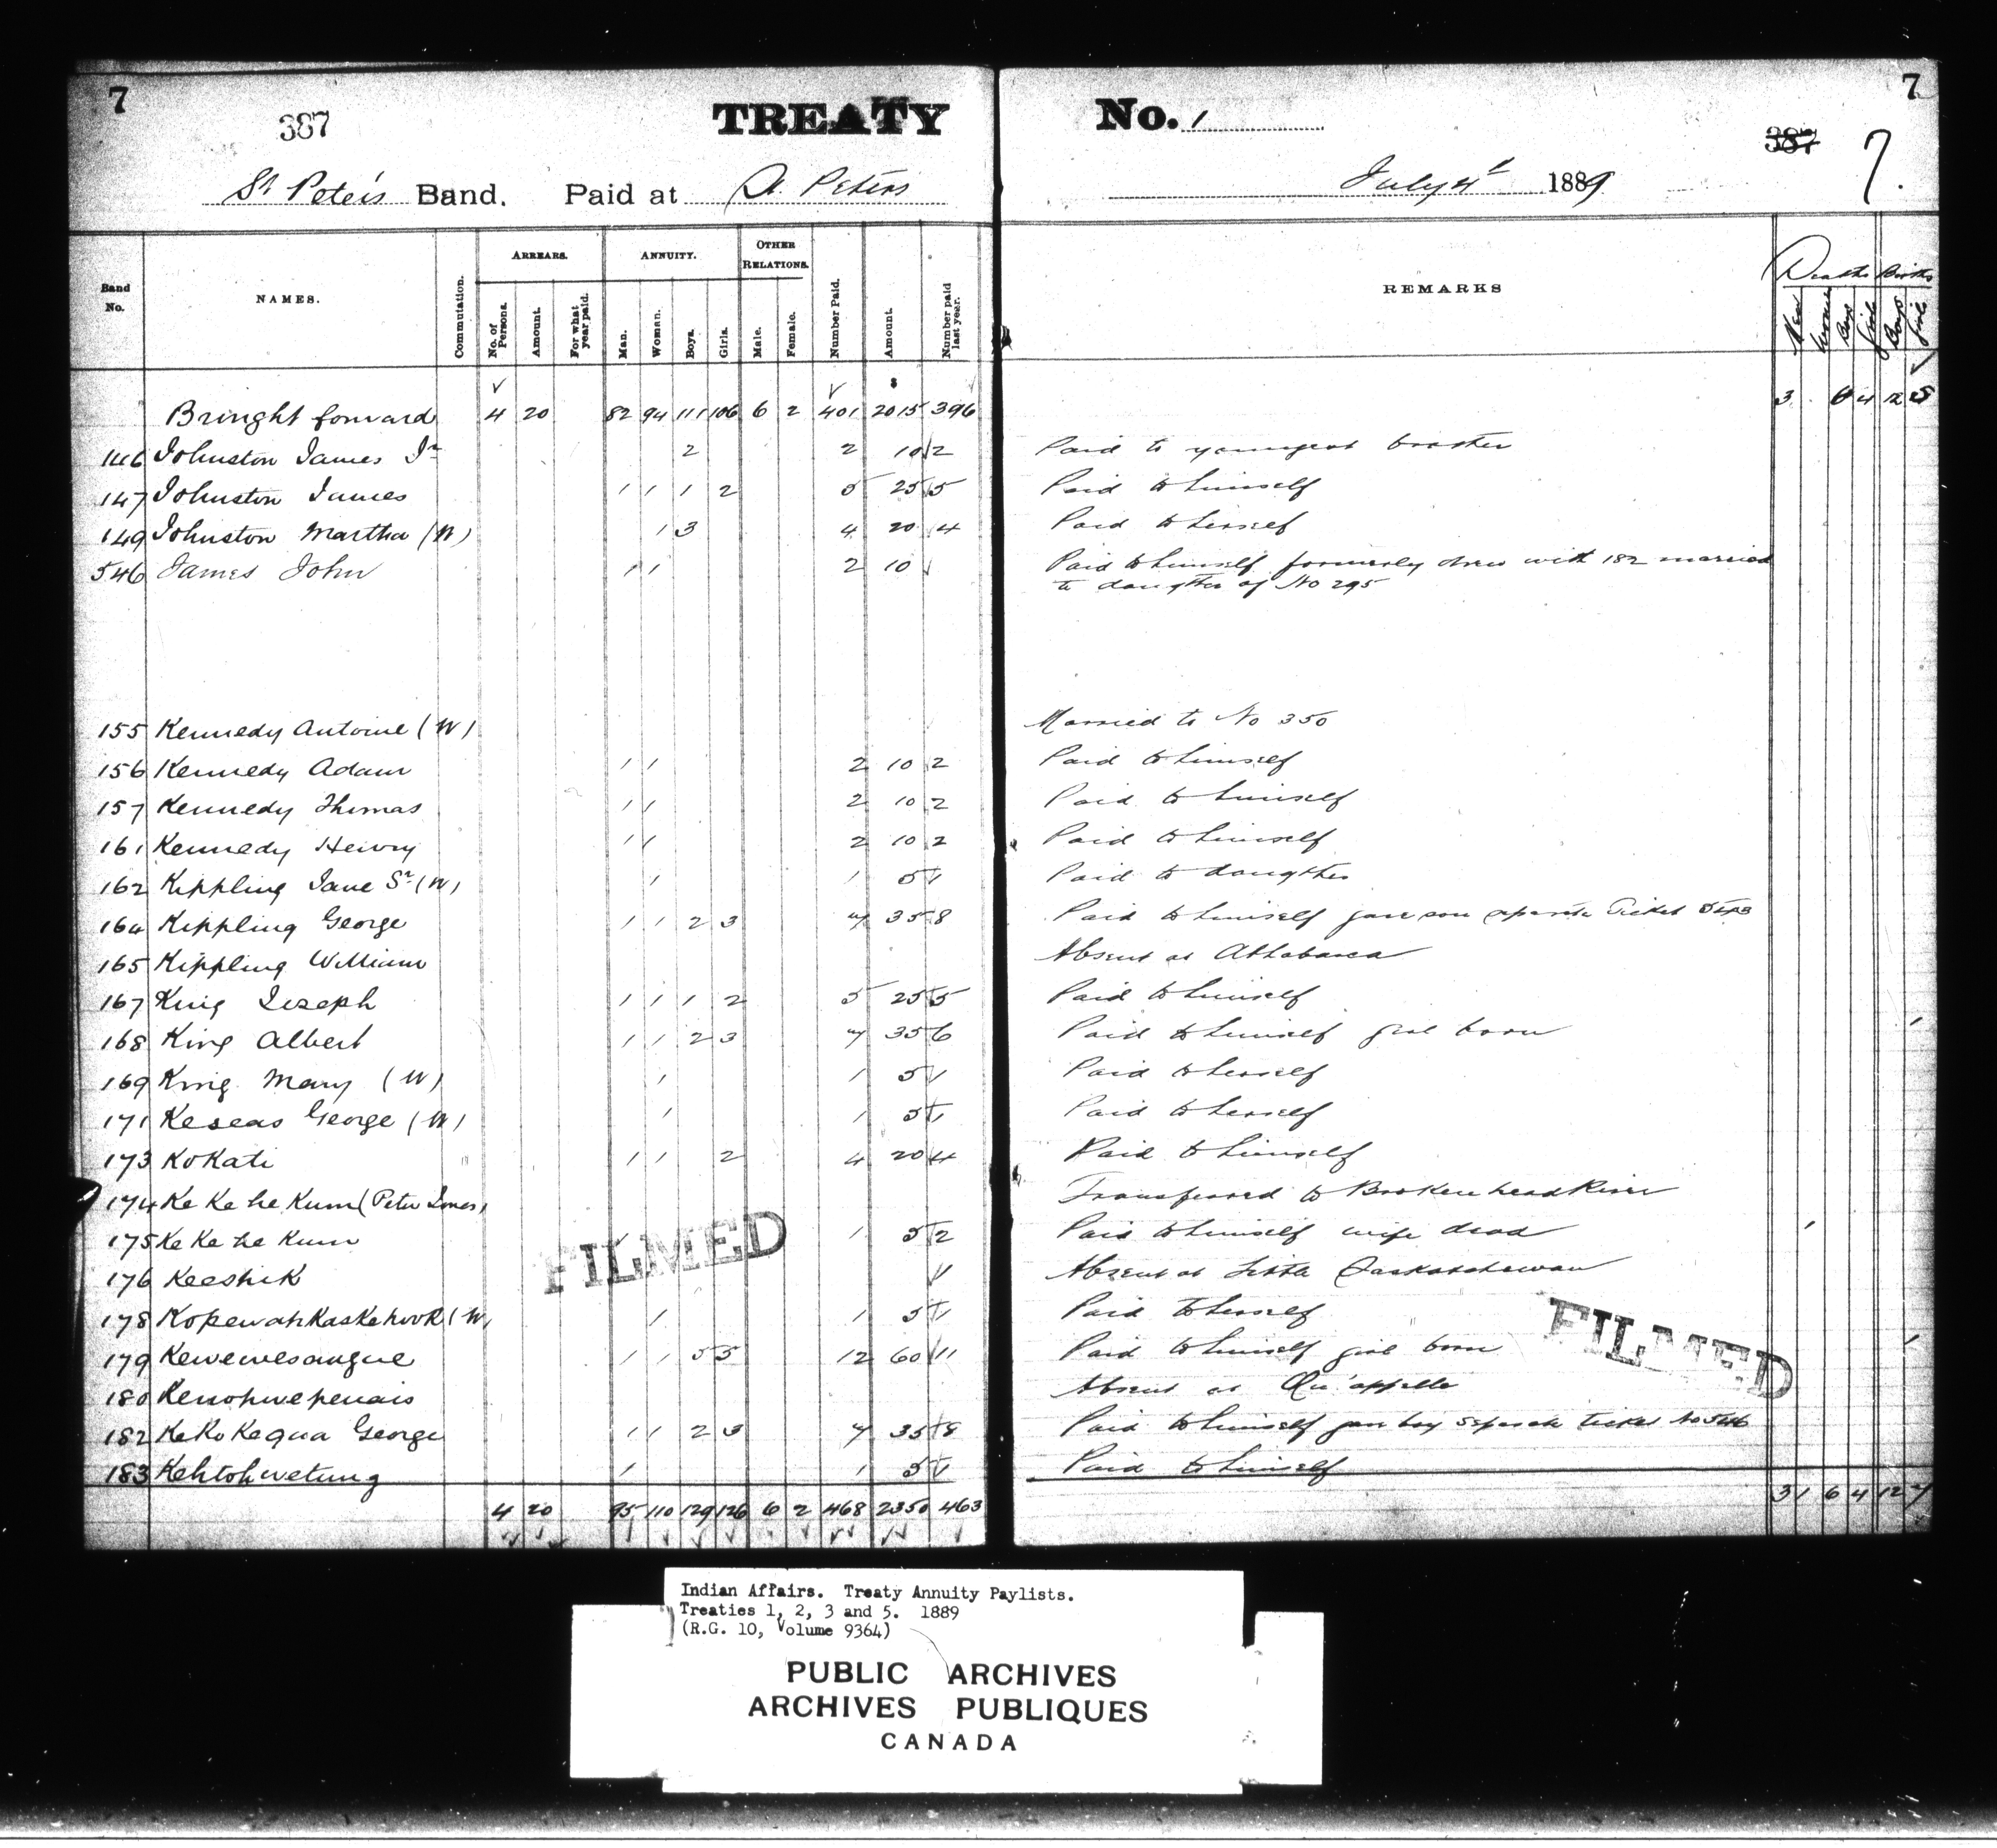 7
387
TREATY No. 1
7
387
7.
St Peter's Band. Paid at St. Peters July 4th 1889
Band No.
NAMES.
Commutation.
ARREARS.
No. of Persons.
Amount.
For what year paid.
ANNUITY.
Man.
Woman.
Boys.
Girls.
OTHER RELATIONS.
Male.
Female.
Number Paid.
Amount.
Number paid last year.
REMARKS
Deaths Births
Men
Women
Boys
Girls
Boys
Girls
Brought forward 4 20 82 94 111 106 6 2 401 2015 396 3 6 4 12 5
146 Johnston James Jr 2 2 10 2 Paid to youngest brother
147 Johnston James 1 1 1 2 5 25 5 Paid to himself
149 Johnston Martha (W) 1 3 4 20 4 Paid to herself
546 James John 1 1 2 10 Paid to himself formerly drew with 182 married
to daughter of No 295
155 Kennedy Antoine (W) Married to No 350
156 Kennedy Adam 1 1 2 10 2 Paid to himself
157 Kennedy Thomas 1 1 2 10 2 Paid to himself
161 Kennedy Henry 1 1 2 10 2 Paid to himself
162 Kippling Jane Sr (W) 1 1 5 1 Paid to daughter
164 Kippling George 1 1 2 3 7 35 8 Paid to himself gave son separate Ticket
165 Kippling William Absent at Athabasca
167 King Joseph 1 1 1 2 5 25 5 Paid to himself
168 King Albert 1 1 2 3 7 35 6 Paid to himself girl born 1
169 King Mary (W) 1 1 5 1 Paid to herself
171 Keseas George (W) 1 1 5 1 Paid to herself
173 Kokati 1 1 2 4 20 4 Paid to himself
174 Ke Ke he Kum (Peter Jones) Transferred to Broken head River
175 Ke Ke he Kum 1 1 5 2 Paid to himself wife dead 1
176 Keeshik Absent at Little Saskatchewan
178 Kopewahkaskehook (W) 1 1 5 1 Paid to herself
179 Kewewesaugue 1 1 5 5 12 60 11 Paid to himself girl born 1
180 Kenohwepenais Absent at Qu'appelle
182 KeKoKequa George 1 1 2 3 7 35 8 Paid to himself gave boy separate ticket No 546
183 Kehtohwetung 1 1 5 1 Paid to himself
4 20 95 110 129 126 6 2 468 2350 463 3 1 6 4 12 7
FILMED
FILMED
Indian Affairs. Treaty Annuity Paylists.
Treaties 1, 2, 3 and 5. 1889
(R.G. 10, Volume 9364)
PUBLIC ARCHIVES
ARCHIVES PUBLIQUES
CANADA